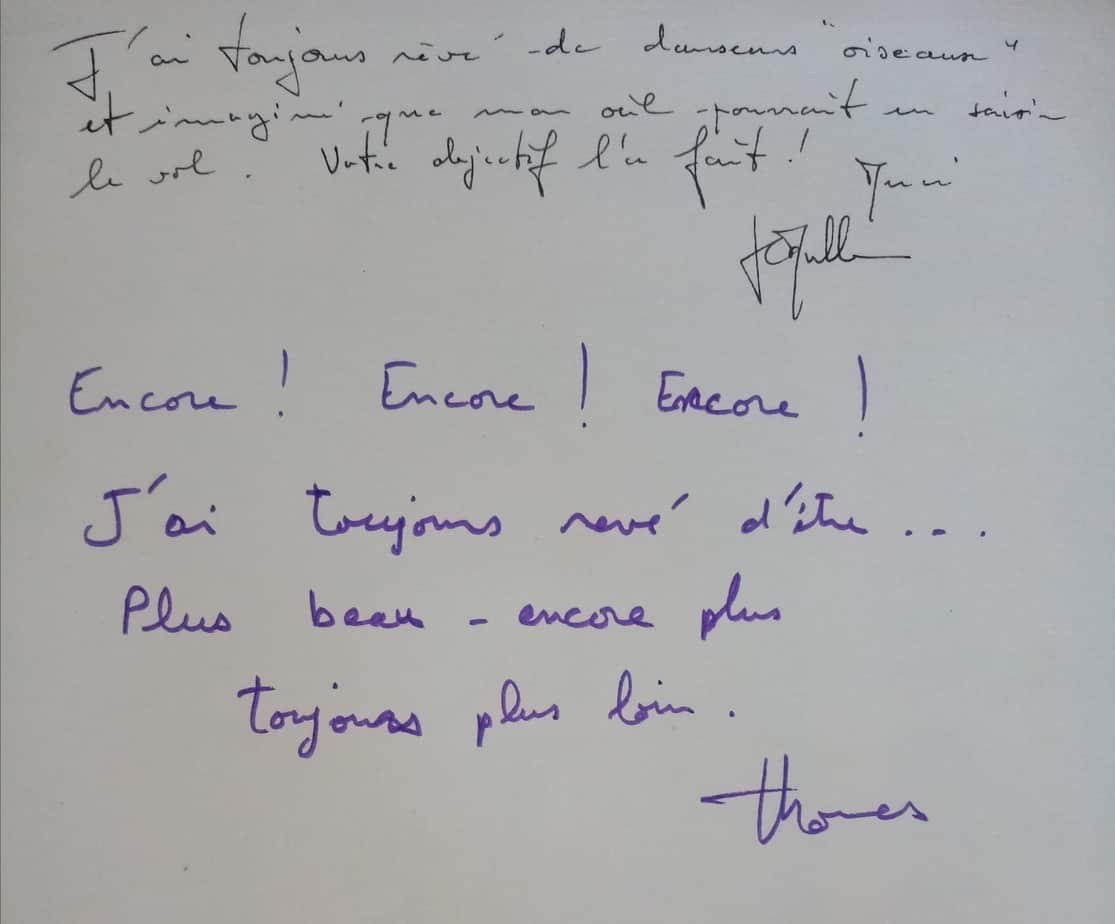 J'ai toujours rêvé de danseurs "oiseaux"
et imaginé que mon œil pourrait en saisir
le vol. Votre objectif l'a fait !
Merci
Encore ! Encore ! Encore !
J'ai toujours revé d'être ...
Plus beau - encore plus
toujours plus loin.
Thomas